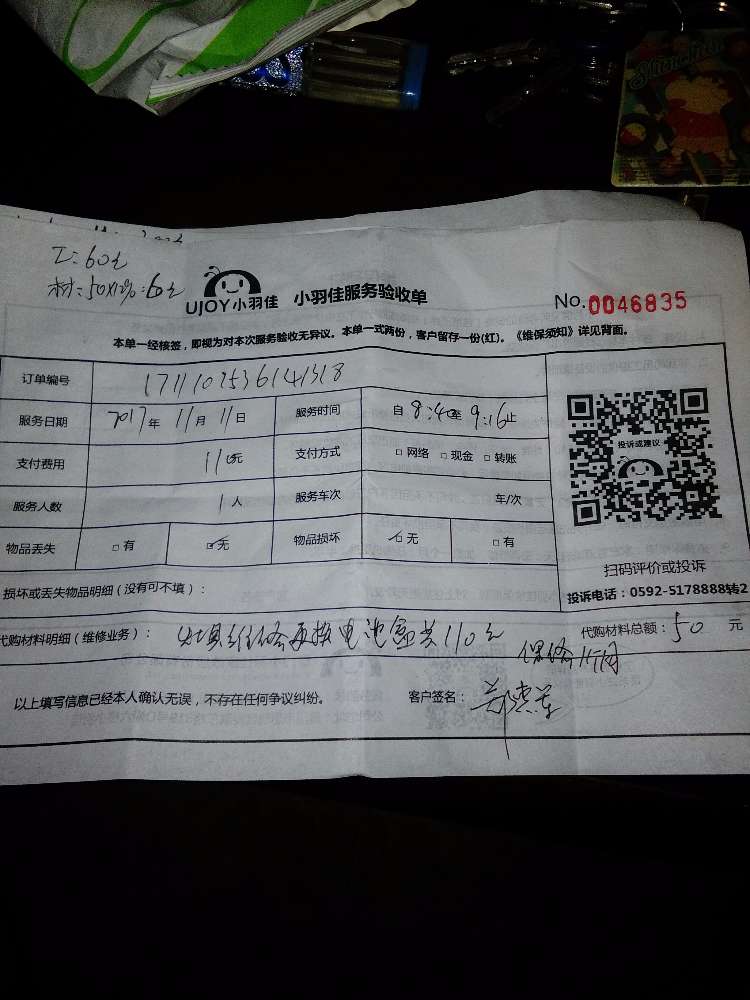 工:60元
材:50×12%:60元
UJOY小羽佳 小羽佳服务验收单 No.0046835
本单一经核签,即视为对本次服务验收无异议。本单一式两份,客户留存一份(红)。《维保须知》详见背面。
订单编号
服务日期 2017年 11月 11日 服务时间 自 8:40至 9:16止
支付费用 110元 支付方式 □网络 □现金 □转账
服务人数 1人 服务车次 车/次
物品丢失 □有 ☑无 物品损坏 ☑无 □有
投诉或建议
扫码评价或投诉
投诉电话:0592-5178888转2
损坏或丢失物品明细(没有可不填):
代购材料明细(维修业务): 维修更换电池盒 110元 代购材料总额:50 元
保修
以上填写信息已经本人确认无误,不存在任何争议纠纷。 客户签名: